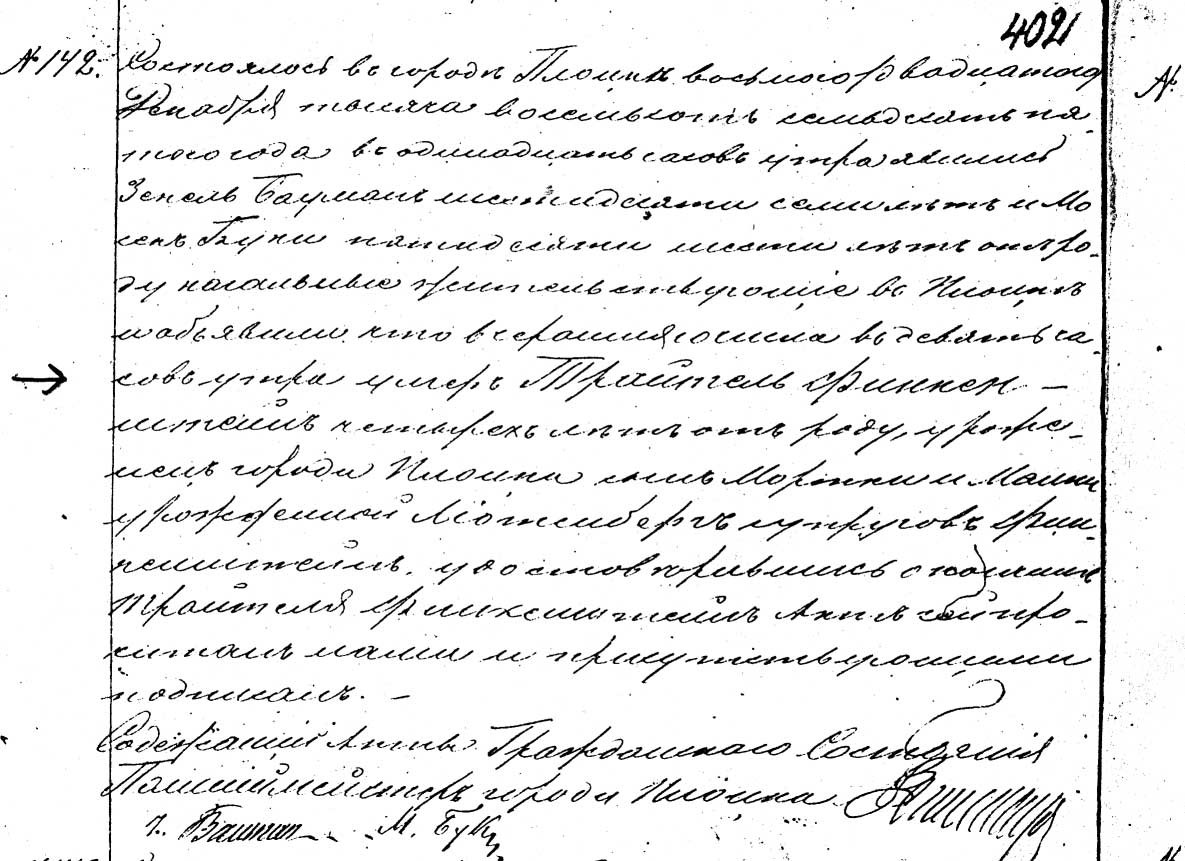 402
№ 142.
Состоялось въ городѣ Плоцкѣ восьмого двадцатаго
Декабря тысяча восемьсотъ семьдесятъ пя
таго года въ одинадцать часовъ утра явились
Зекель Бауманъ шестидесяти семи лѣтъ и Мо
секъ Буки пятидесяти шести лѣтъ отъ ро-
ду жительствующіе въ Плоцкѣ
и объявили что вчерашняго числа въ девять ча-
совъ утра умеръ Трайтель Финкен-
штейнъ четырехъ лѣтъ отъ роду, уроже-
нецъ города Плоцка сынъ Мортки и Малки
урожденной супруговъ Фин-
кенштейнъ. удостовѣрившись о кончинѣ
Трайтеля Финкенштейнъ Актъ сей про-
читанъ нами и присутствующими
подписанъ. —
Содержащій Акты Гражданскаго Состоянія
Полиціймейстеръ города Плоцка
М. Буки
№